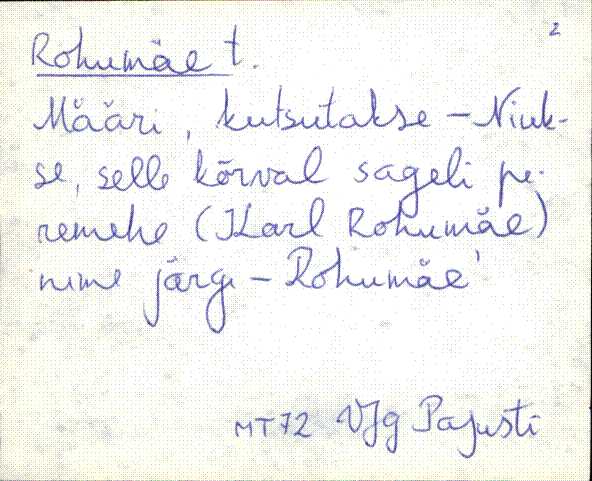 2
Rohumäe t.
Määri, kutsutakse - Niuk-
se, selle kõrval sageli pe-
remehe (Karl Rohumäe)
nime järgi - Rohumäe'
MT72 VJg Pajusti